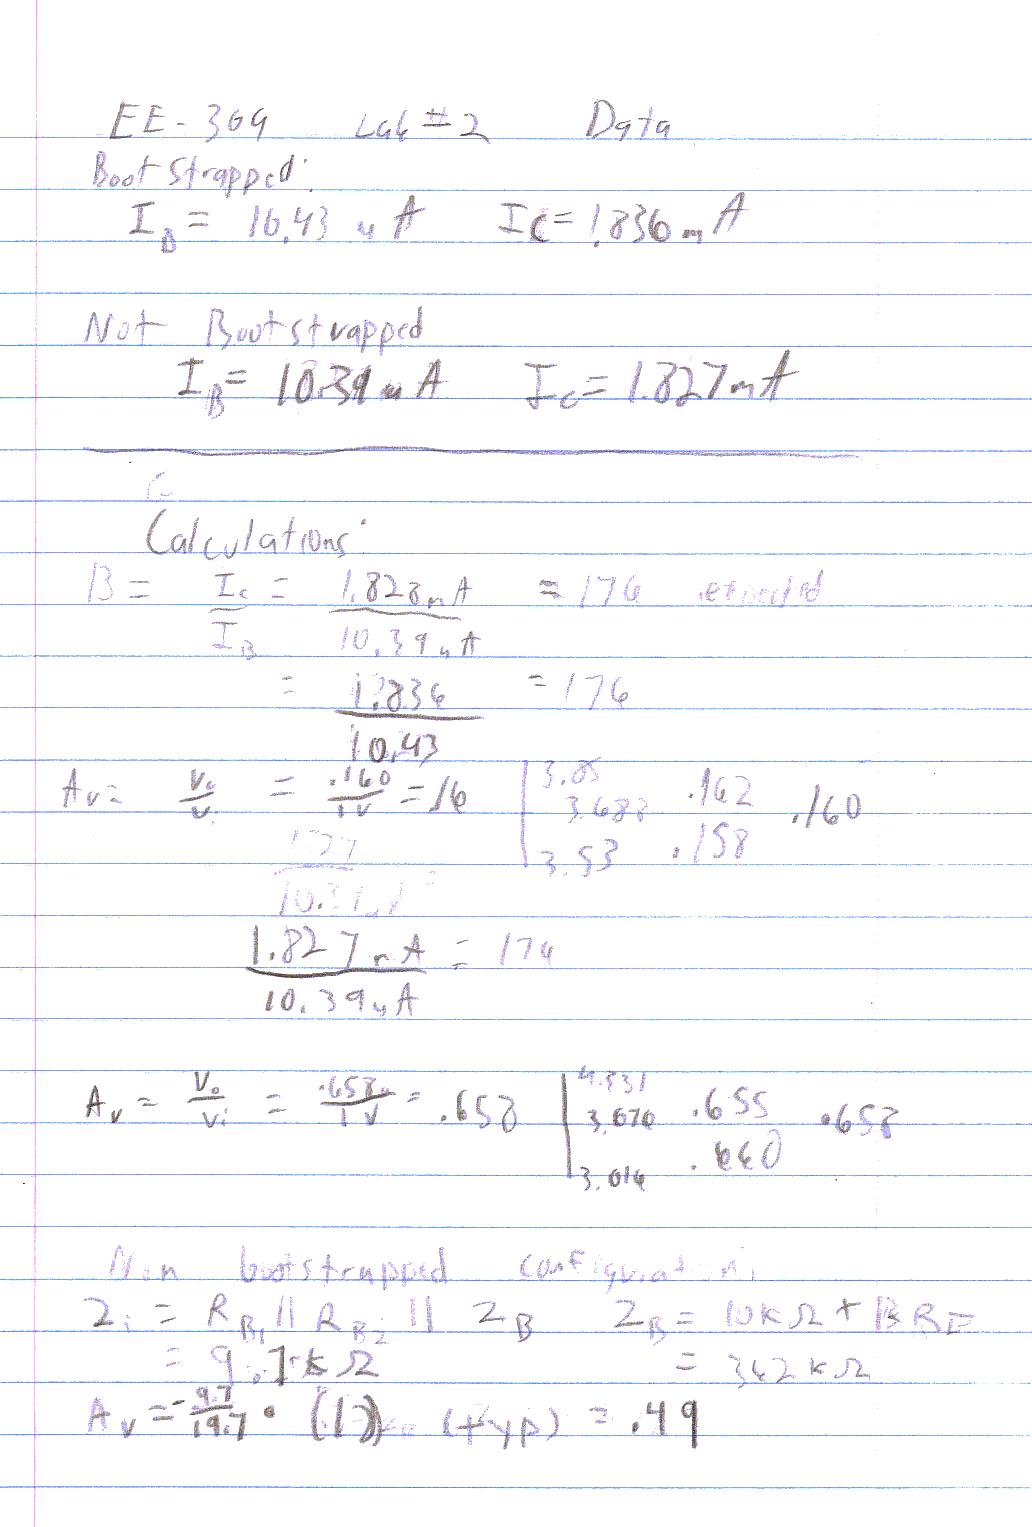 EE-369 Lab #2 Data
Bootstrapped:
I_B = 10.43 uA I_C = 1.836 mA
Not Bootstrapped
I_B = 10.39 uA I_C = 1.827 mA
Calculations:
B = I_C / I_B = 1.828 mA / 10.39 uA = 176 expected
= 1.836 / 10.43 = 176
A_V = V_o / V_i = .160 / 1V = .16 3.85 3.688 3.53 .162 .158 .160
1.827 mA / 10.39 uA = 176
A_V = V_o / V_i = .658 / 1V = .658 4.331 3.676 3.016 .655 .660 .658
Non bootstrapped configuration:
Z_i = R_B1 || R_B2 || Z_B Z_B = 10kΩ + B R_E
= 9.7kΩ = 362kΩ
A_V = 9.7 / 19.7 • (1) (typ) = .49